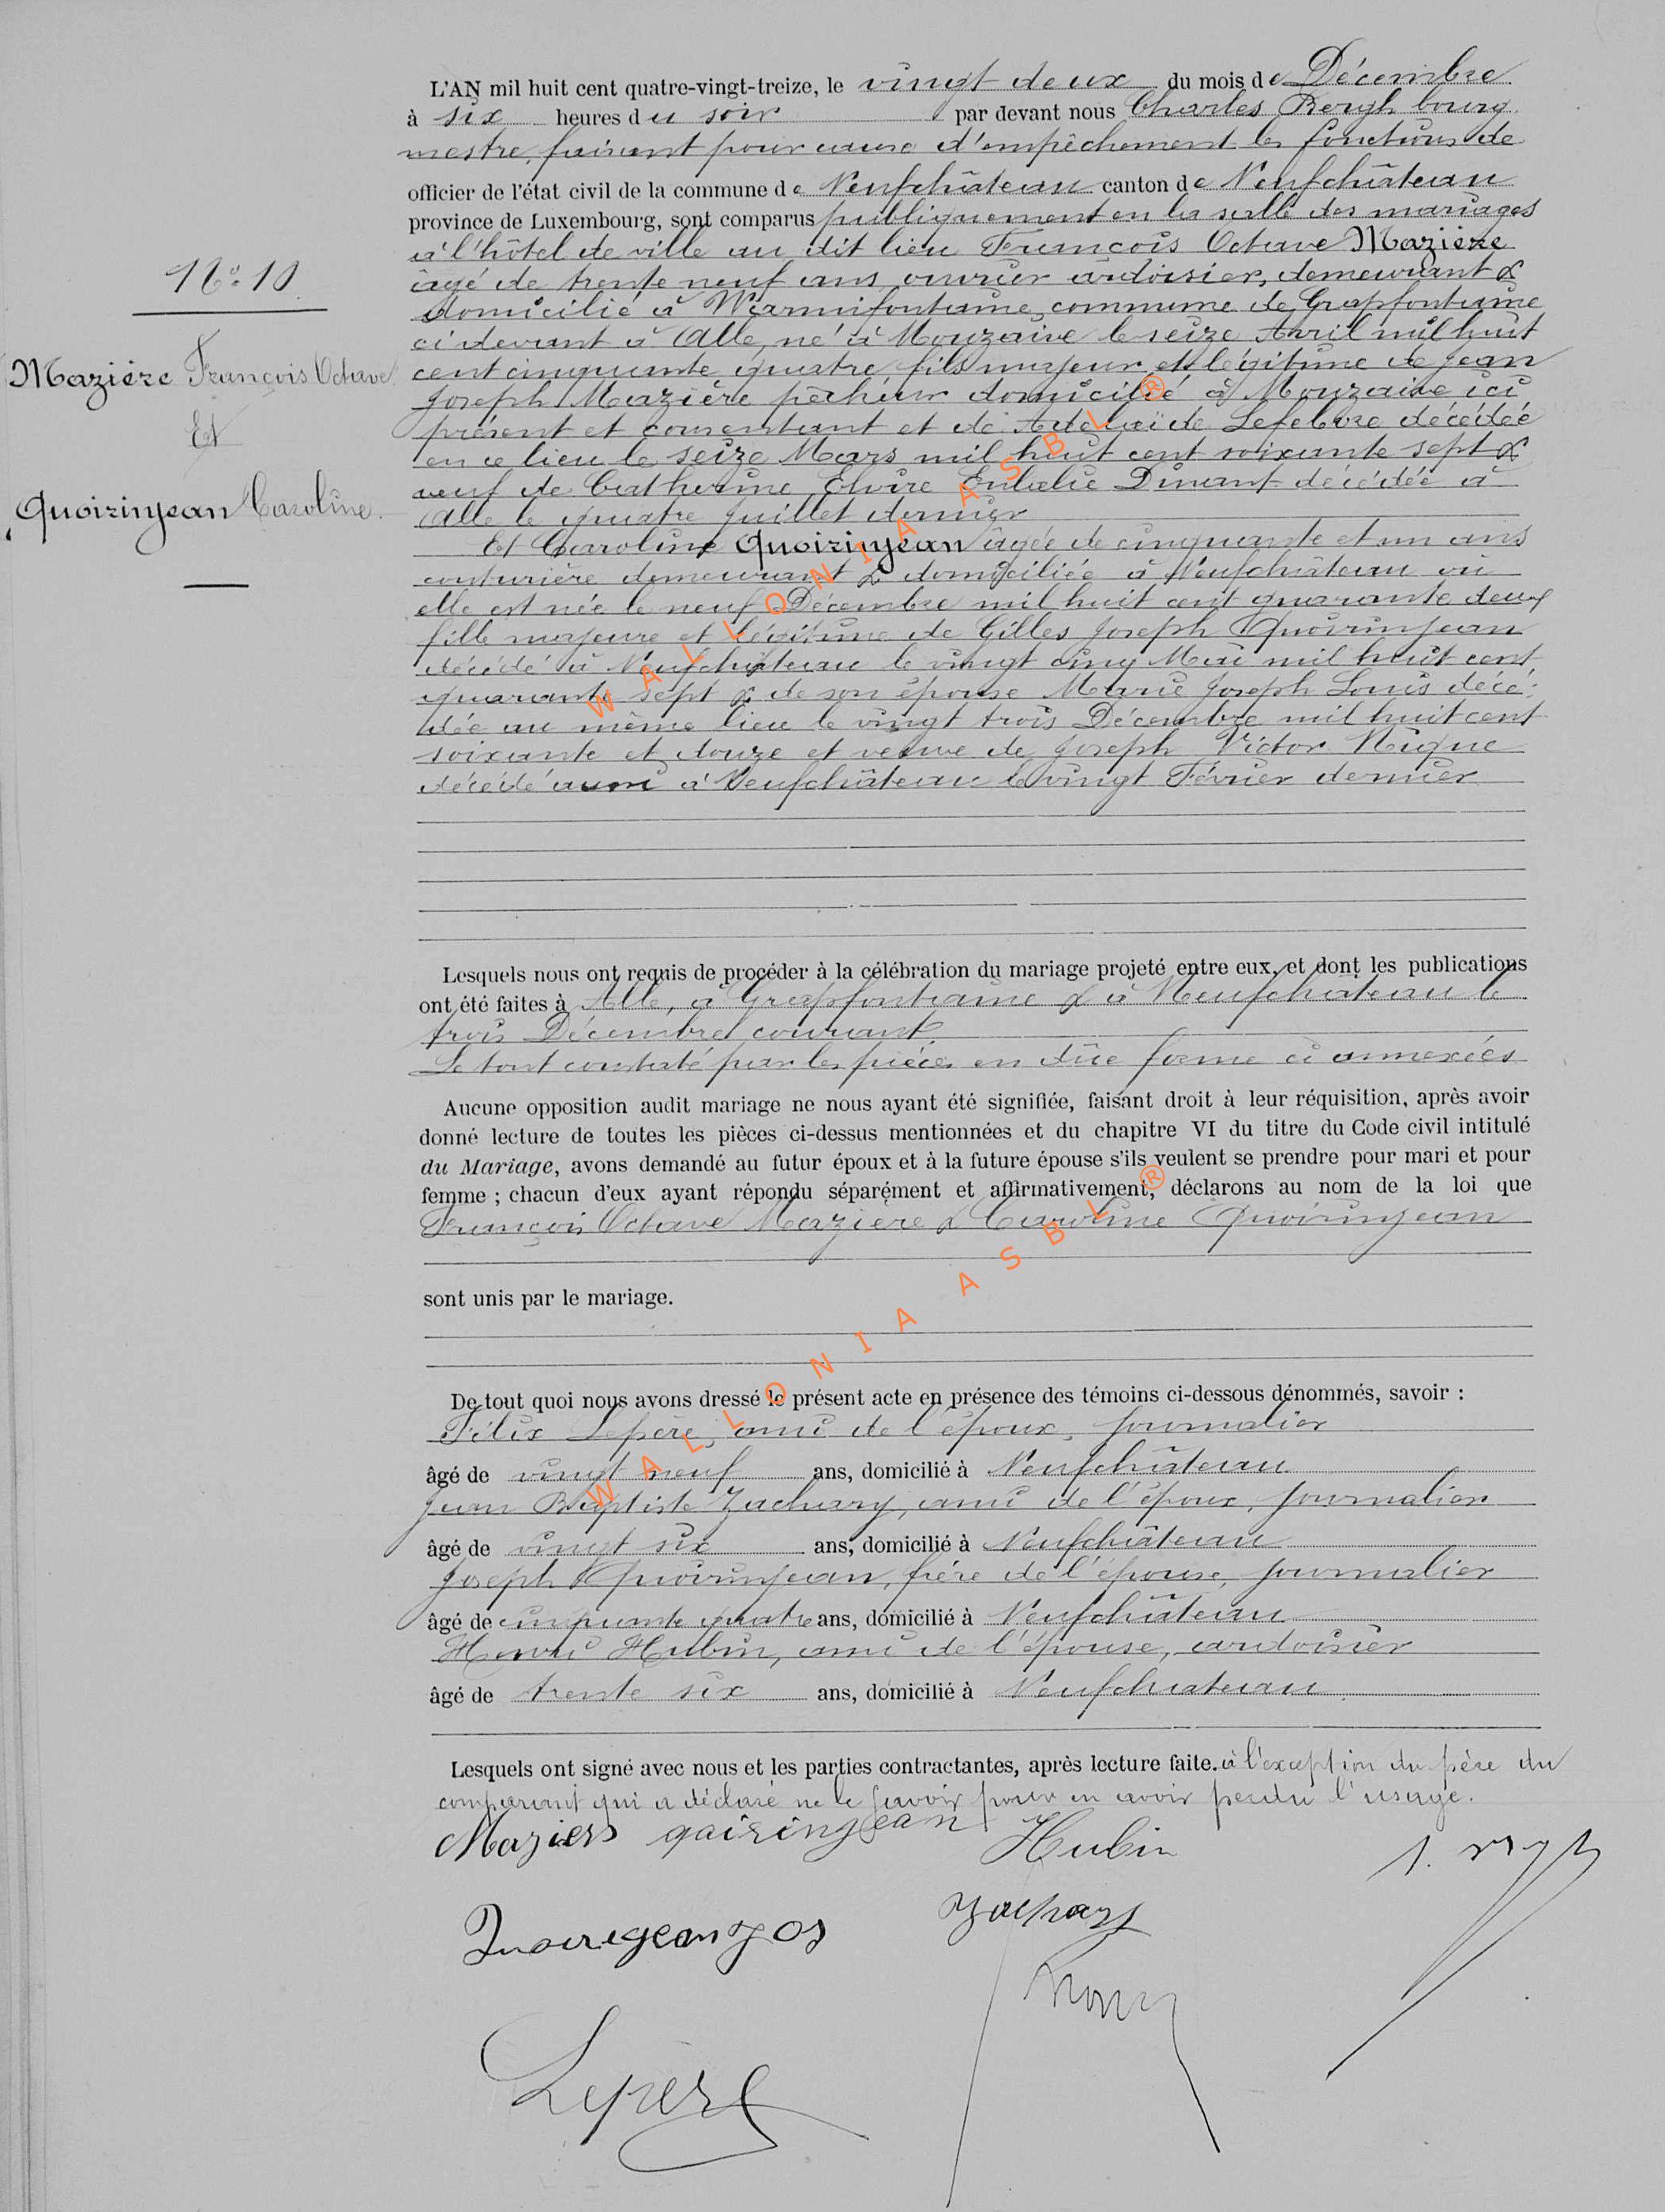 L'AN mil huit cent quatre-vingt-treize, le vingt deux du mois de Décembre
à six heures du soir par devant nous Charles Bergh bourg
mestre, faisant pour cause d'empêchement les fonctions de
officier de l'état civil de la commune de Neufchâteau canton de Neufchâteau
province de Luxembourg, sont comparus publiquement en la salle des mariages
à l'hôtel de ville au dit lieu François Octave Mazière
âgé de trente neuf ans, ouvrier ardoisier, demeurant &
domicilié à Warmifontaine, commune de Grapfontaine
ci devant à Alle, né à Mouzaive le seize Avril mil huit
cent cinquante quatre, fils majeur et légitime de Jean
Joseph Mazière pêcheur domicilié à Mouzaive ici
présent et consentant et de Adelaïde Lefebvre décédée
en ce lieu le seize Mars mil huit cent soixante sept &
veuf de Catherine Elvire Eulalie Dinant décédée à
Alle le quatre Juillet dernier
Et Caroline Quoirinjean âgée de cinquante et un ans
couturière demeurant & domiciliée à Neufchâteau où
elle est née le neuf Décembre mil huit cent quarante deux
fille majeure et légitime de Gilles Joseph Quoirinjean
décédé à Neufchâteau le vingt cinq Mai mil huit cent
quarante sept & de son épouse Marie Joseph Louis décé-
dée au même lieu le vingt trois Décembre mil huit cent
soixante et douze et veuve de Joseph Victor Nuque
décédé aussi à Neufchâteau le vingt Février dernier
N° 10
Mazière François Octave
Et
Quoirinjean Caroline
Lesquels nous ont requis de procéder à la célébration du mariage projeté entre eux, et dont les publications
ont été faites à Alle, à Grapfontaine & à Neufchateau le
trois Décembre courant.
Le tout constaté par les pièces en dûe forme ci annexées
Aucune opposition audit mariage ne nous ayant été signifiée, faisant droit à leur réquisition, après avoir
donné lecture de toutes les pièces ci-dessus mentionnées et du chapitre VI du titre du Code civil intitulé
du Mariage, avons demandé au futur époux et à la future épouse s'ils veulent se prendre pour mari et pour
femme ; chacun d'eux ayant répondu séparément et affirmativement, déclarons au nom de la loi que
François Octave Mazière & Caroline Quoirinjean
sont unis par le mariage.
De tout quoi nous avons dressé le présent acte en présence des témoins ci-dessous dénommés, savoir :
Félix Lepère, ami de l'époux, journalier
âgé de vingt neuf ans, domicilié à Neufchâteau
Jean Baptiste Zachary, ami de l'époux, journalier
âgé de vingt six ans, domicilié à Neufchâteau
Joseph Quoirinjean, frère de l'épouse, journalier
âgé de cinquante quatre ans, domicilié à Neufchâteau
Henri Hubin, ami de l'épouse, ardoisier
âgé de trente six ans, domicilié à Neufchateau
Lesquels ont signé avec nous et les parties contractantes, après lecture faite. à l'exception du père du
comparant qui a déclaré ne le savoir pour en avoir perdu l'usage.
Maziers qairinjean Hubin
Quoirigean Jos Zachary
Lepère
WALLONIA ASBL ®
WALLONIA ASBL ®